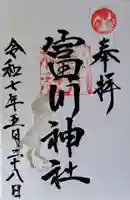 奉拝
富田神社
令和七年五月二十八日